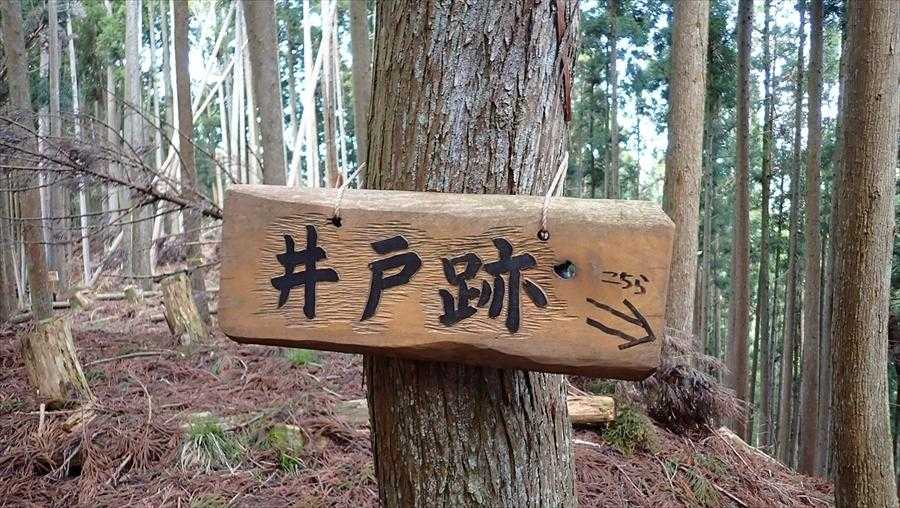 井戸跡
こちら